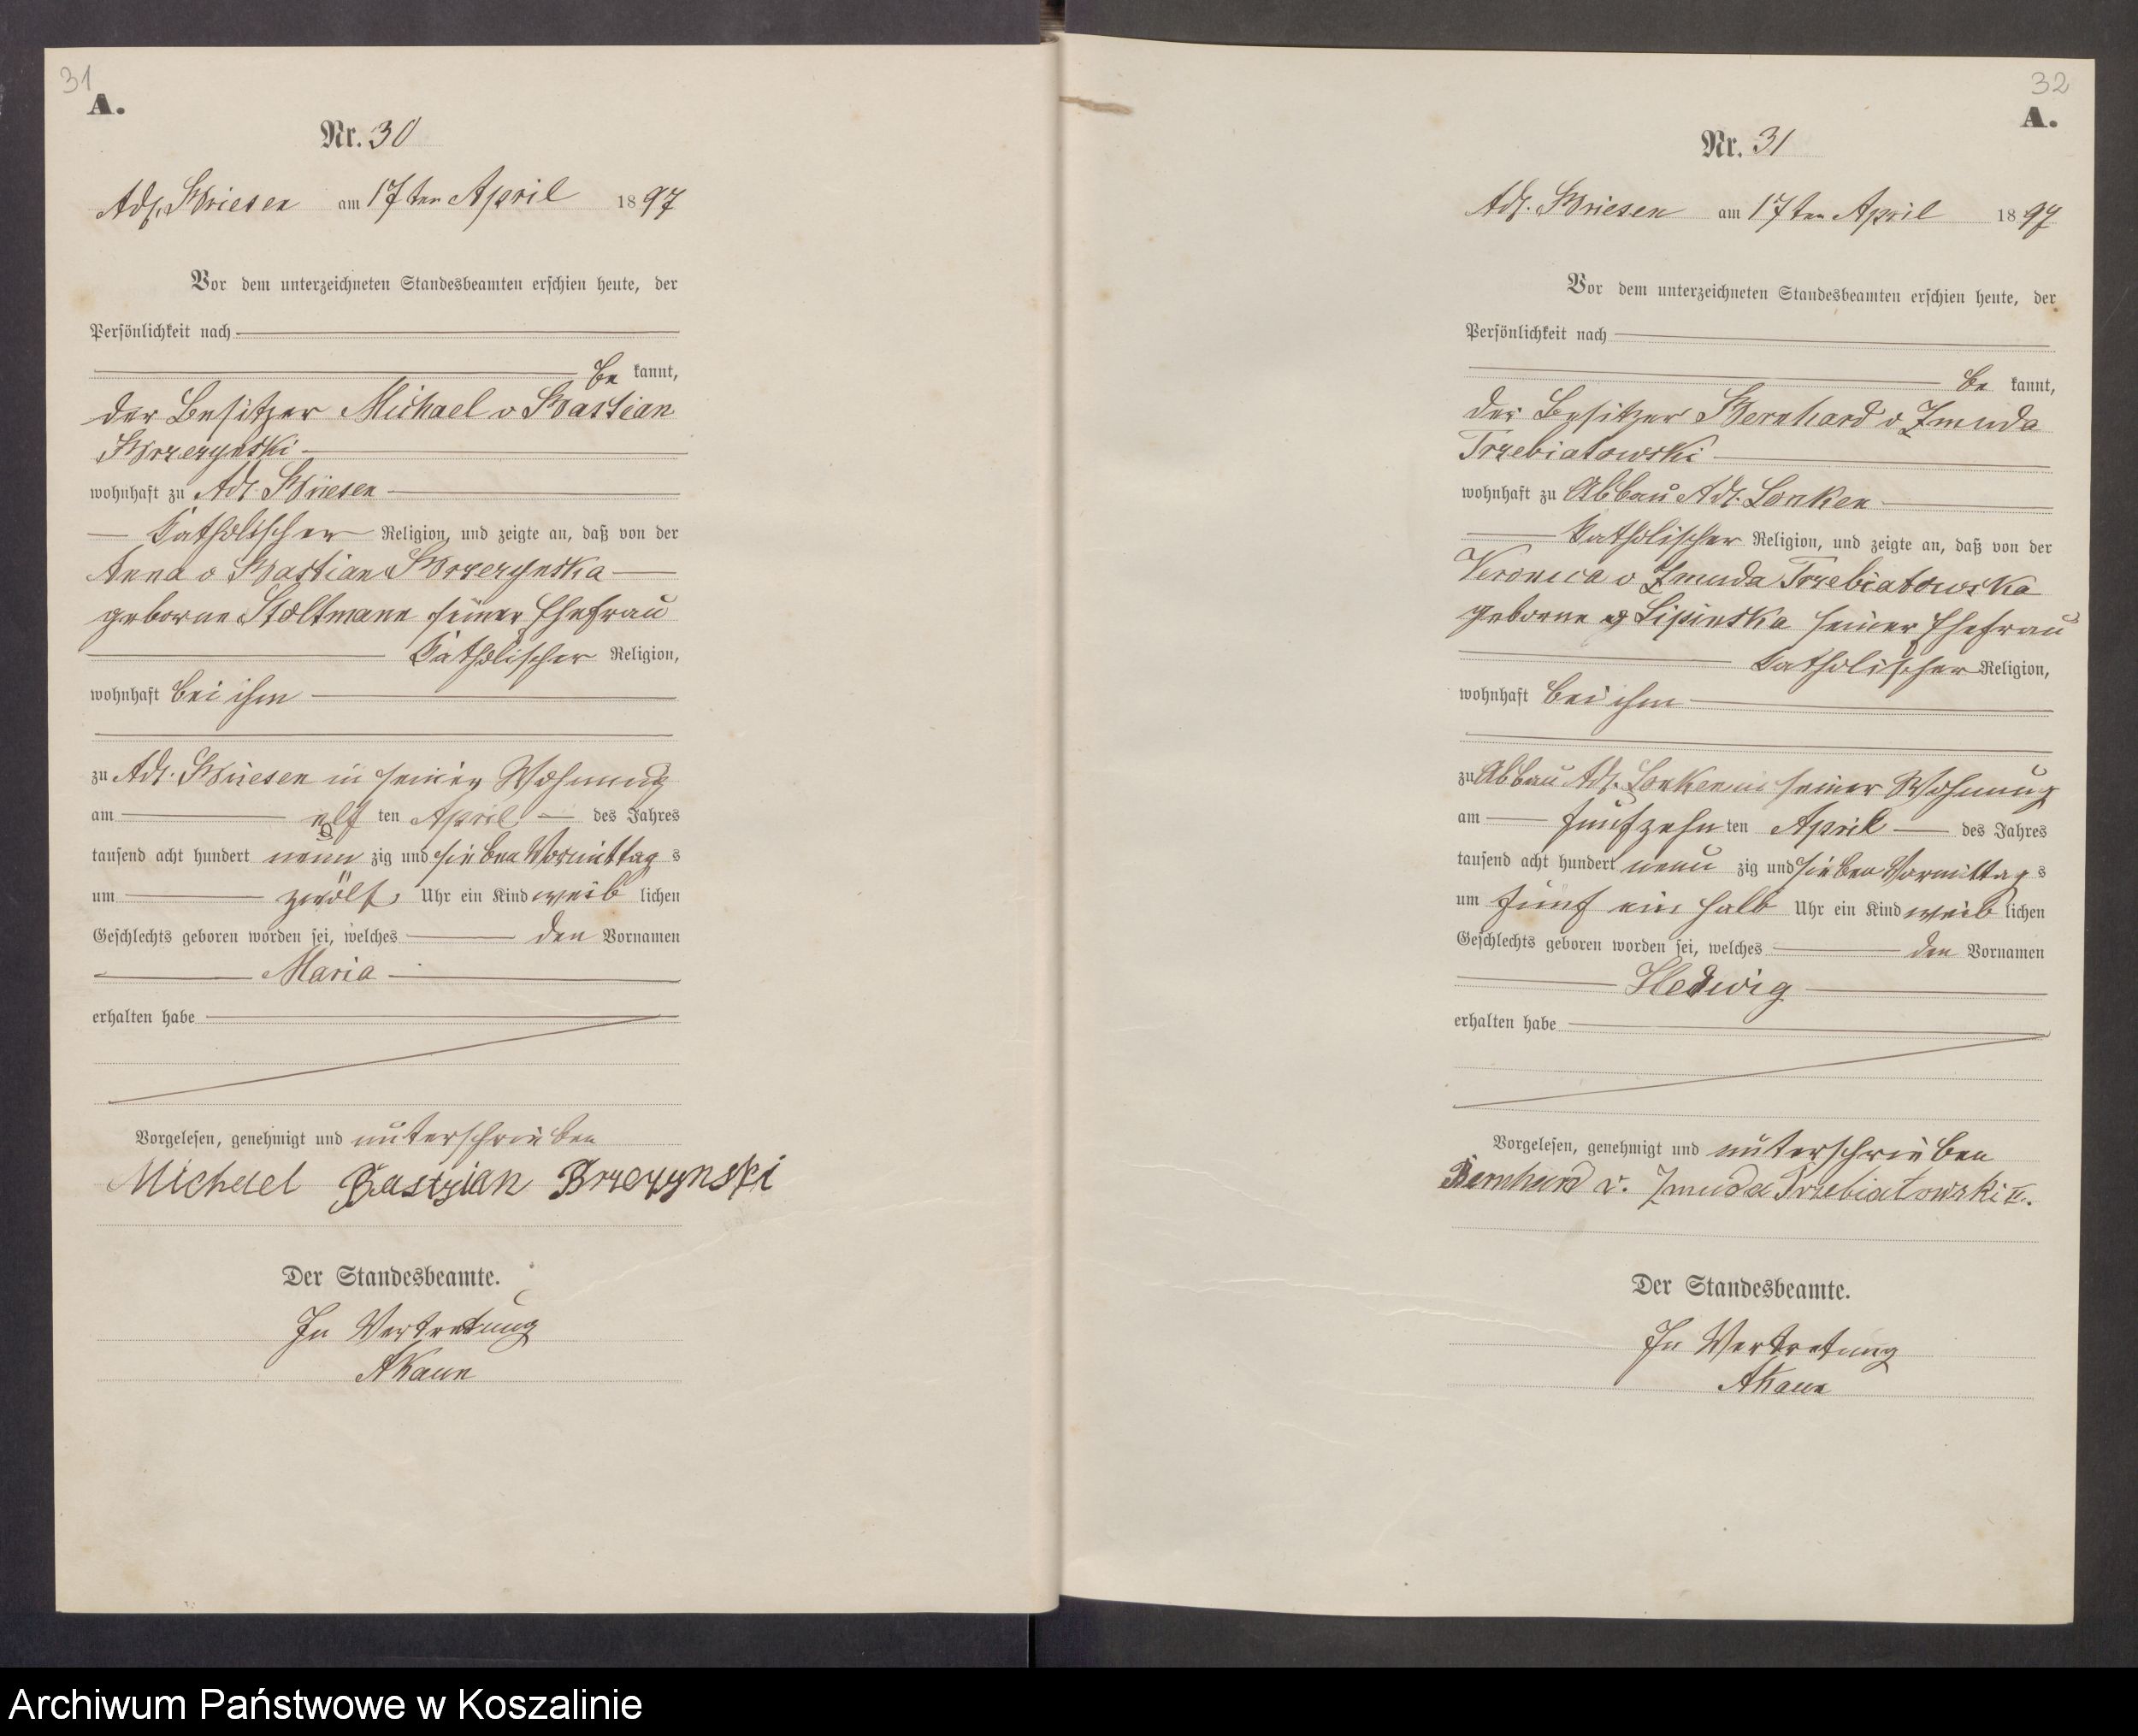 31
A.
Nr. 30
Adl. Briesen am 17ten April 1897
Vor dem unterzeichneten Standesbeamten erschien heute, der
Persönlichkeit nach
be kannt,
der Besitzer Michael v Bastian
Brzezynski
wohnhaft zu Adl. Briesen
katholischer Religion, und zeigte an, daß von der
Anna v Bastian Brzezynska
geborne Stoltmann seiner Ehefrau
katholischer Religion,
wohnhaft bei ihm
zu Adl. Briesen in seiner Wohnung
am elf ten April des Jahres
tausend acht hundert neun zig und sieben Vormittag s
um zwölf Uhr ein Kind weib lichen
Geschlechts geboren worden sei, welches den Vornamen
Maria
erhalten habe
Vorgelesen, genehmigt und unterschrieben
Michael Bastzian Brzezynski
Der Standesbeamte.
In Vertretung
AKaun
32
A.
Nr. 31
Adl. Briesen am 17ten April 1897
Vor dem unterzeichneten Standesbeamten erschien heute, der
Persönlichkeit nach
be kannt,
der Besitzer Bernhard v Zmuda
Trzebiatowski
wohnhaft zu Abbau Adl. Lonken
katholischer Religion, und zeigte an, daß von der
Veronica v Zmuda Trzebiatowska
geborne v Lipinska seiner Ehefrau
katholischer Religion,
wohnhaft bei ihm
zu Abbau Adl. Lonken in seiner Wohnung
am fünfzehn ten April des Jahres
tausend acht hundert neun zig und sieben Vormittag s
um fünf ein halb Uhr ein Kind weib lichen
Geschlechts geboren worden sei, welches den Vornamen
Hedwig
erhalten habe
Vorgelesen, genehmigt und unterschrieben
Bernhard v. Zmuda Trzebiatowski II.
Der Standesbeamte.
In Vertretung
AKaun
Archiwum Państwowe w Koszalinie